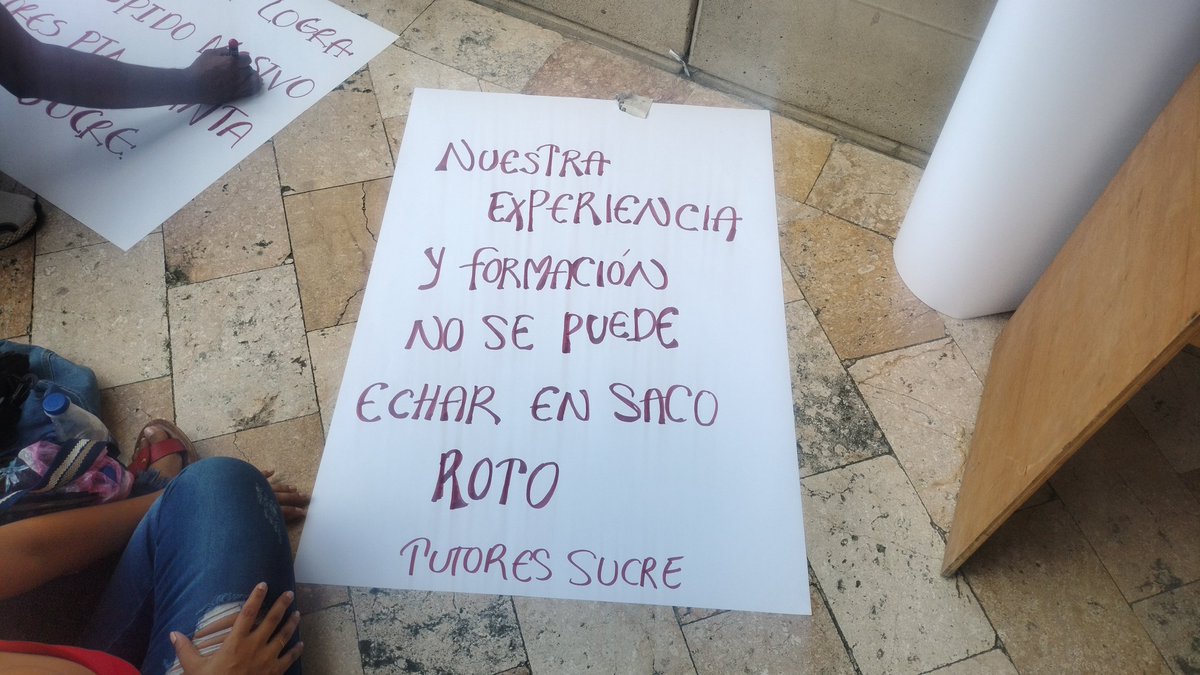 LOGRA
PIDO
SIVO
RES PTA
INTA
SUCRE.
NUESTRA
EXPERIENCIA
Y FORMACIÓN
NO SE PUEDE
ECHAR EN SACO
ROTO
TUTORES SUCRE